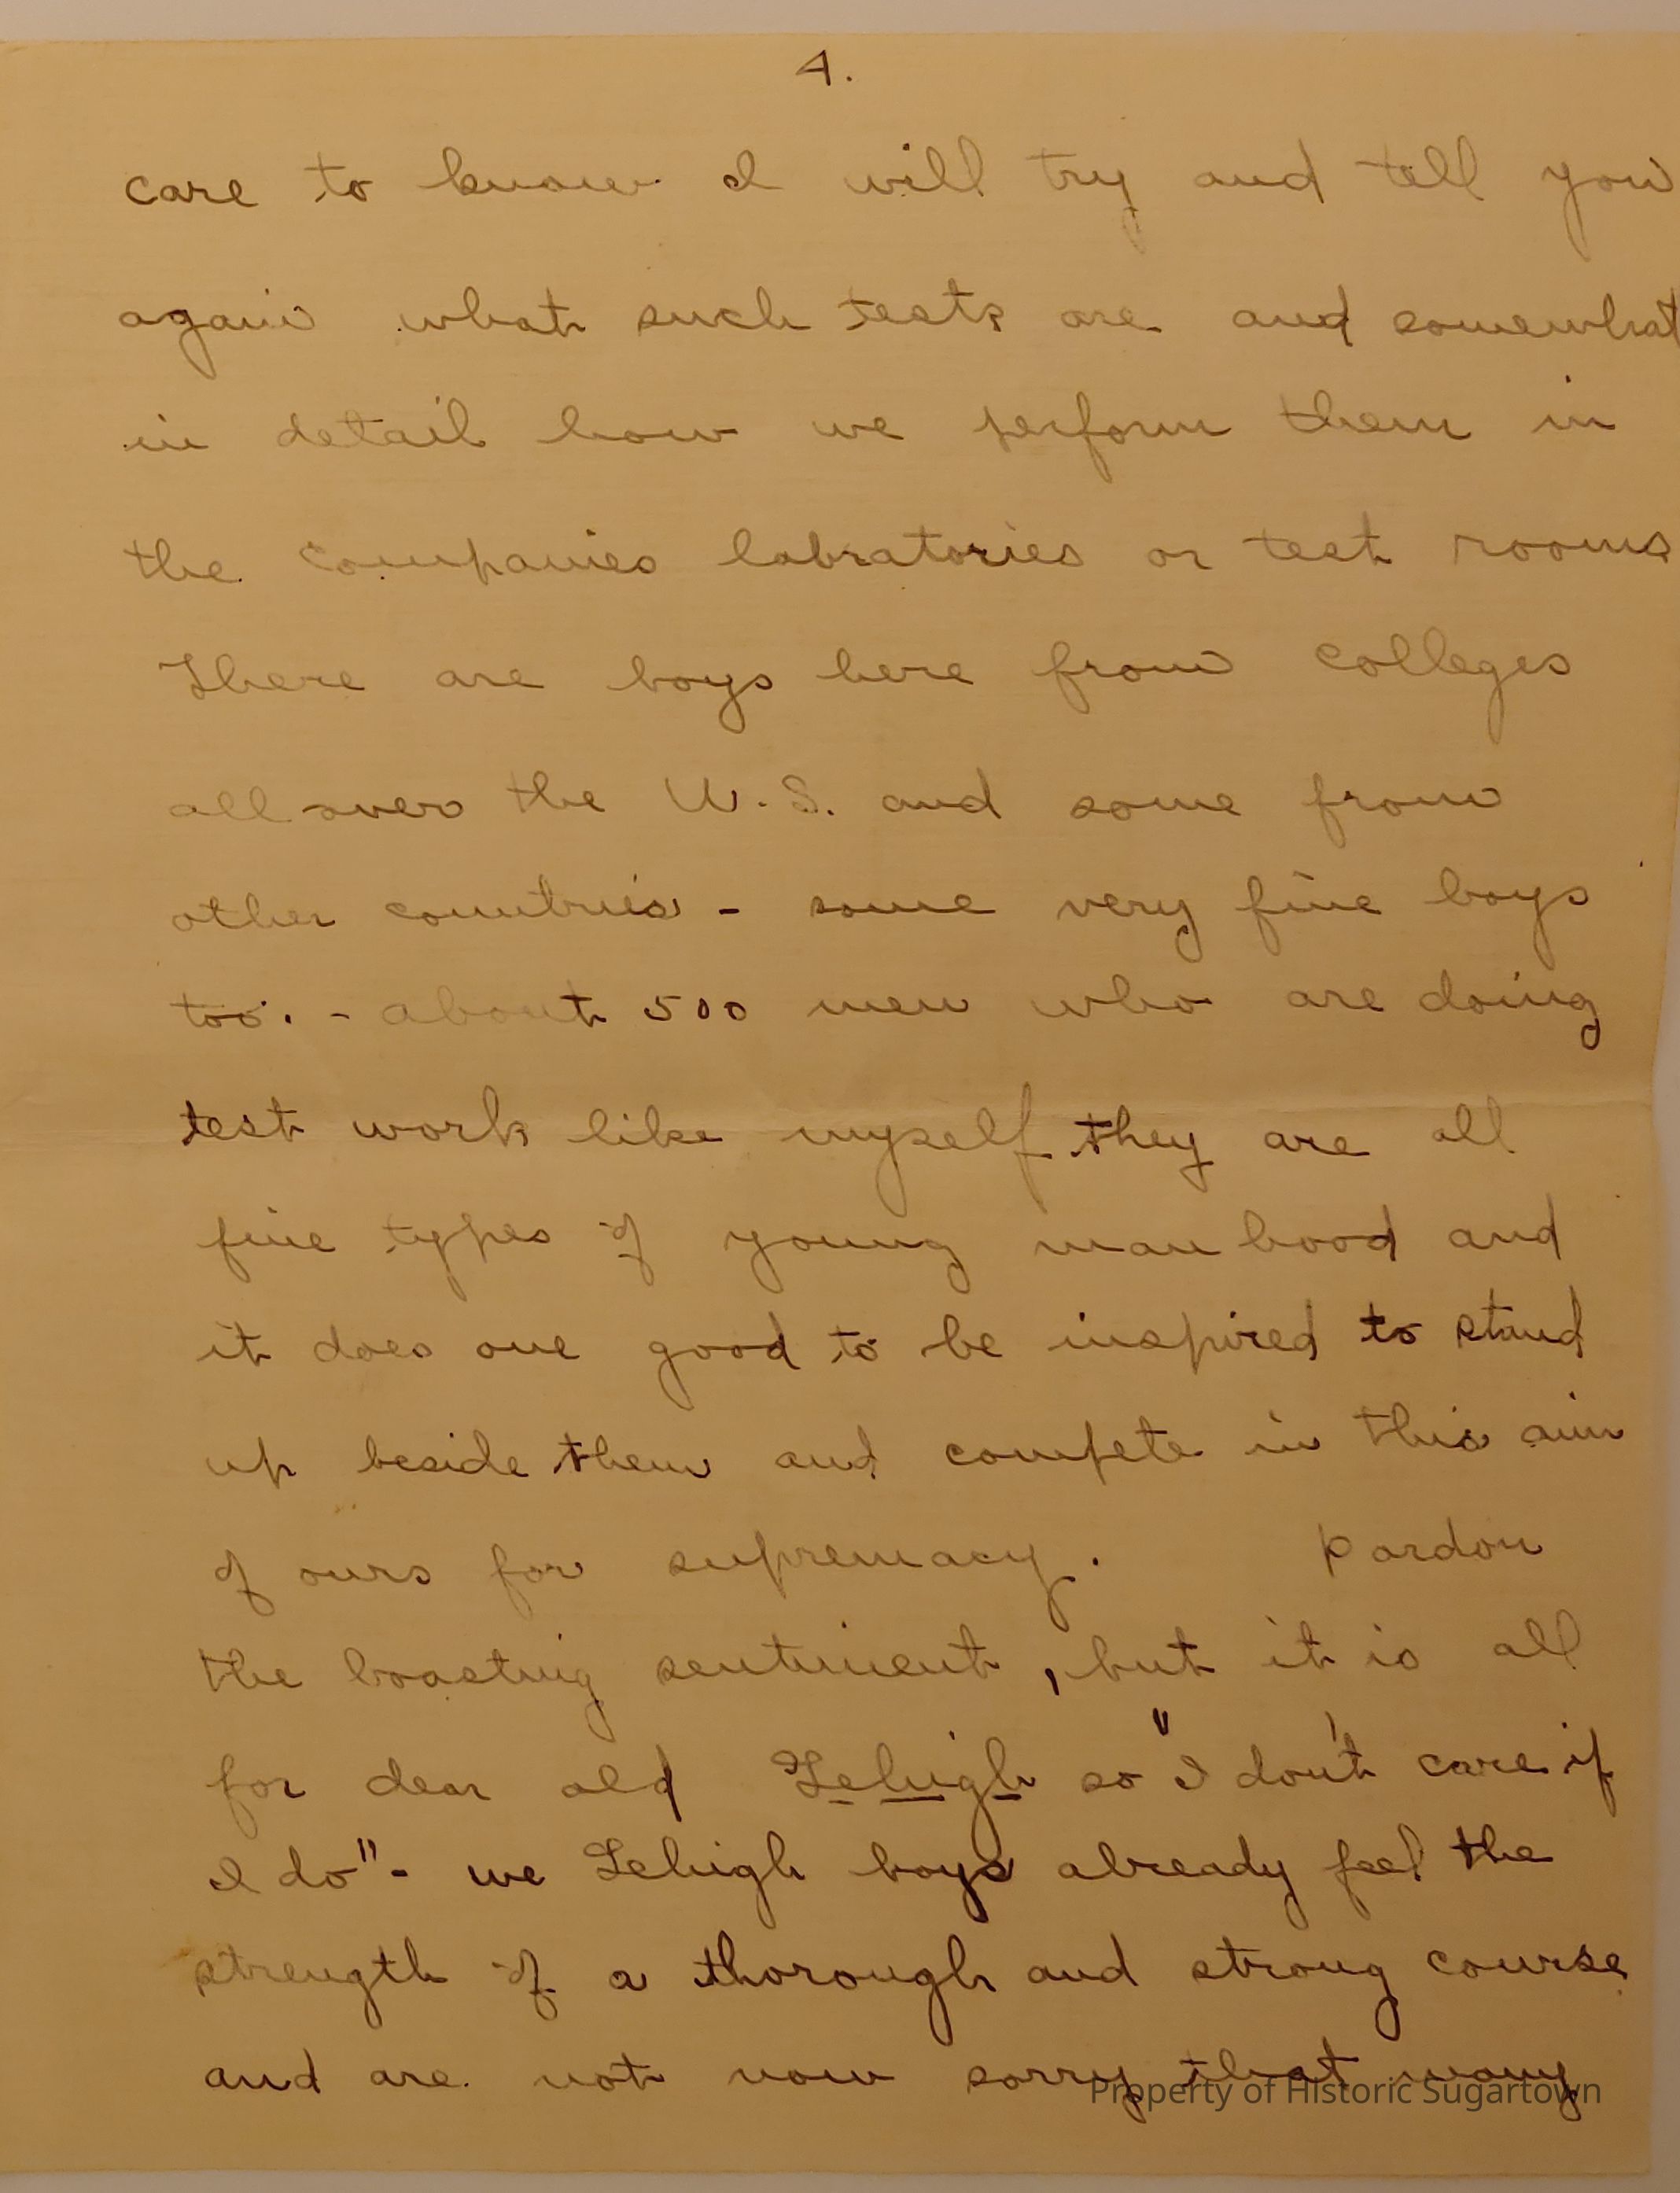 4.
care to know I will try and tell you
again what such tests are and somewhat
in detail how we perform them in
the companies labratories or test rooms
There are boys here from colleges
all over the U.S. and some from
other countries - some very fine boys
too. - about 500 men who are doing
test work like myself they are all
fine types of young manhood and
it does one good to be inspired to stand
up beside them and compete in this aim
of ours for supremacy. Pardon
the boasting sentiment, but it is all
for dear old Lehigh so "I don't care if
I do" - we Lehigh boys already feel the
strength of a thorough and strong course
and are not now sorry that many
Property of Historic Sugartown